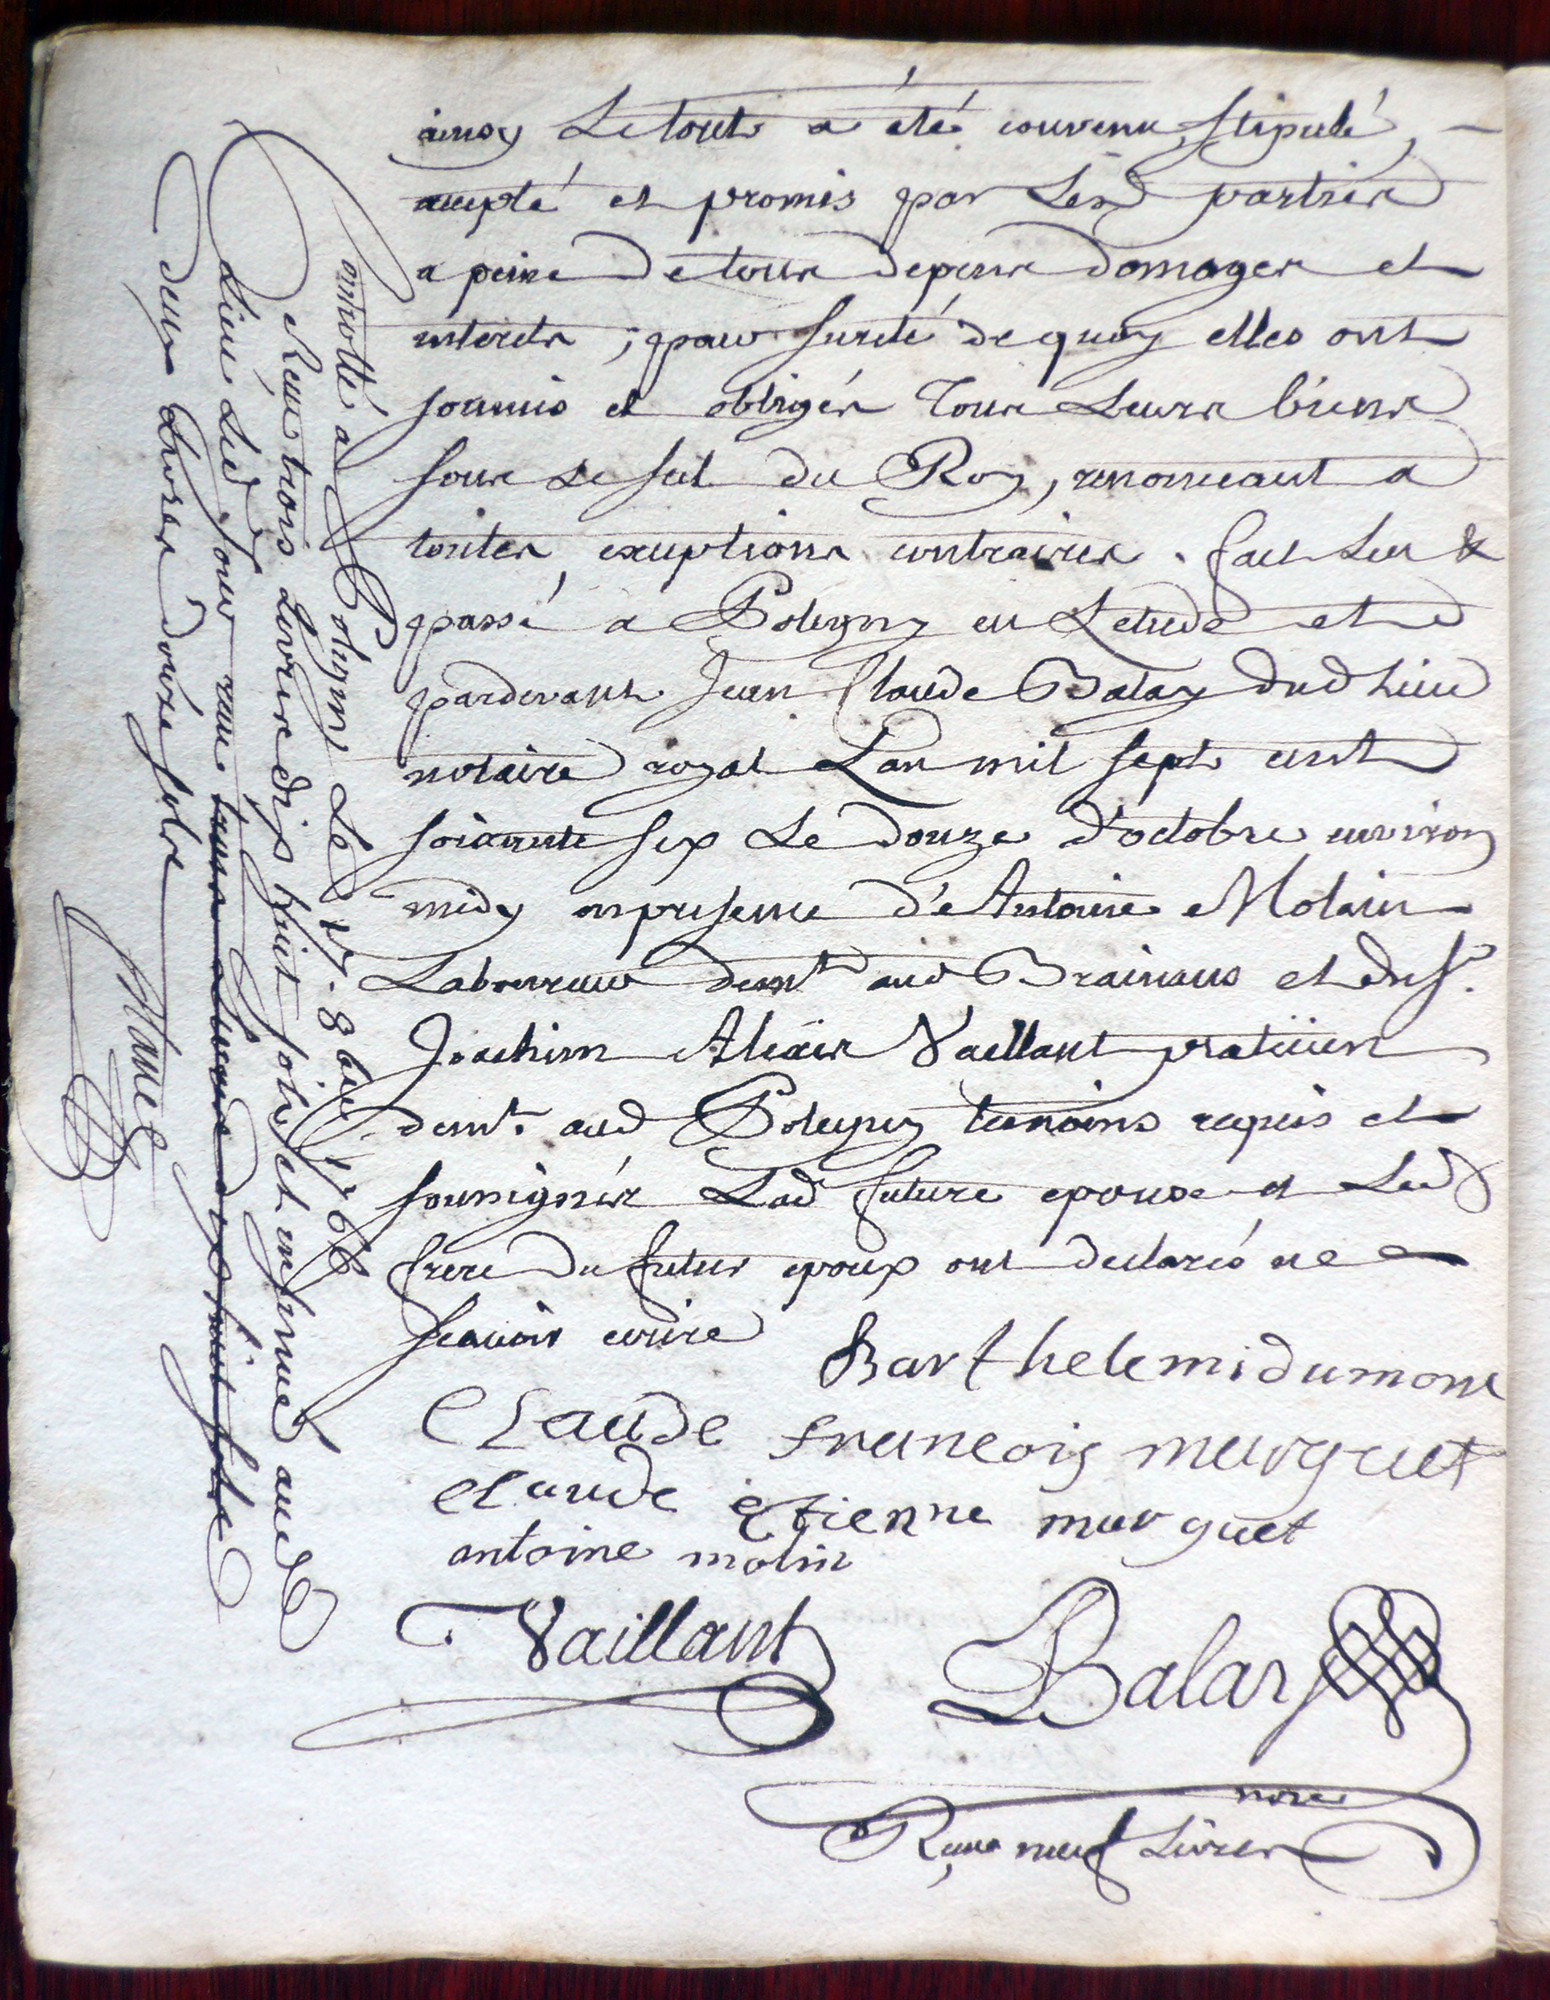 ainsy Le tout a été convenu, stipulé,
accepté et promis par Lesd parties
a peine de tous depens domages et
interets ; pour sureté de quoy elles ont
soumis et obligés Tous Leurs biens
sous Le scel du Roy, renonceant a
toutes exceptions contraires. fait Leu &
passé a Poligny en Letude et
pardevant Jean Claude Balay dud Lieu
notaire royal Lan mil sept cent
soixante six Le douze d'octobre environ
midy en presence d'Antoine Molain
Laboureur demt aud Brainans et du Sr.
Joachim Alexis Vaillant praticien
demt. aud Poligny temoins requis et
soussignés Lad future epouse et Led
frere du futur epoux ont declarés ne
scavoir ecrire
Barthelemi dumont
Claude francois murguet
claude etienne murguet
antoine molin
Vaillant
Balay
nore
Reçu neuf Livres
Controllé a Poligny Le 17. 8bre 1766
Reçu trois Livres dix huit sols et insinué aud
Lieu Led Jour reçu
deux Livres douze sols